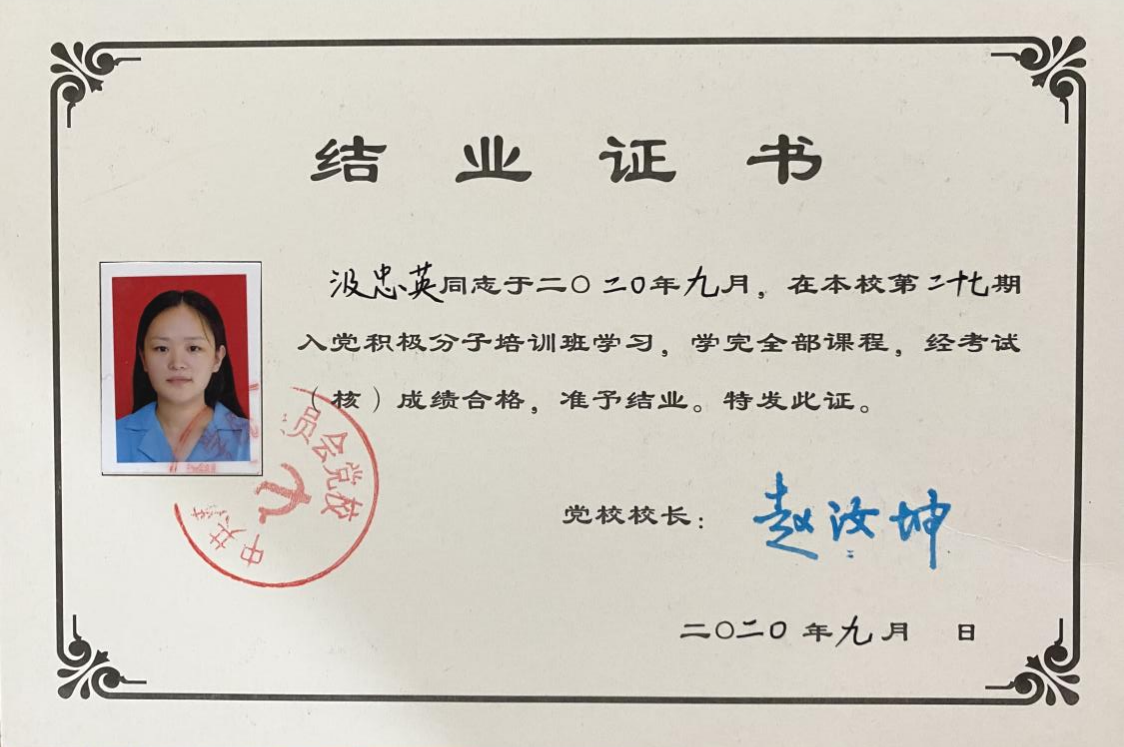 结业证书
汲忠英同志于二〇二〇年九月，在本校第二十七期
入党积极分子培训班学习，学完全部课程，经考试
（核）成绩合格，准予结业。特发此证。
员会党校
中共
党校校长：赵汝坤
二〇二〇年九月 日